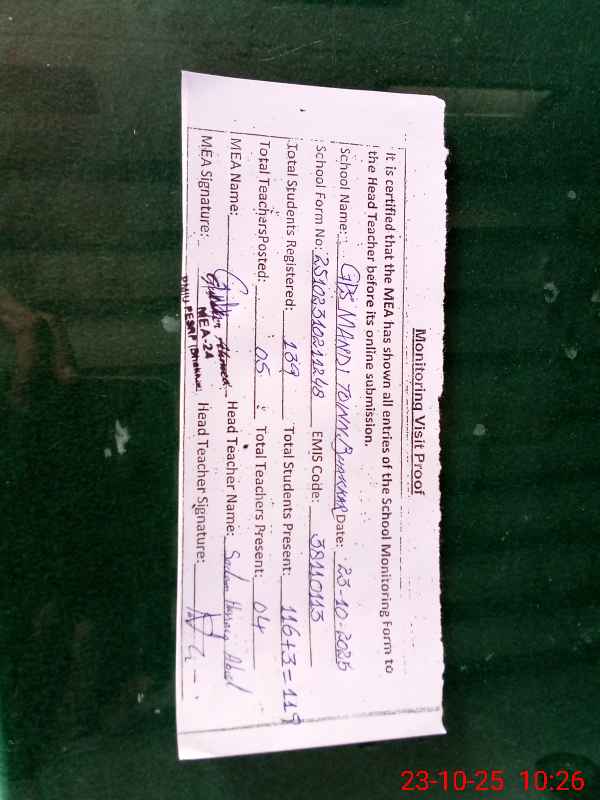 Monitoring Visit Proof
It is certified that the MEA has shown all entries of the School Monitoring Form to
the Head Teacher before its online submission.
School Name: GPS MANDI TOWN BHAKKAR Date: 23-10-2025
School Form No: 251023102111248 EMIS Code: 38110113
Total Students Registered: 139 Total Students Present: 116+3=119
Total TeachersPosted: 05 Total Teachers Present: 04
MEA Name: Ahmed Head Teacher Name:
MEA Signature: Head Teacher Signature:
MEA-2A
PMIU, PESRP (Bhakkar)
23-10-25 10:26